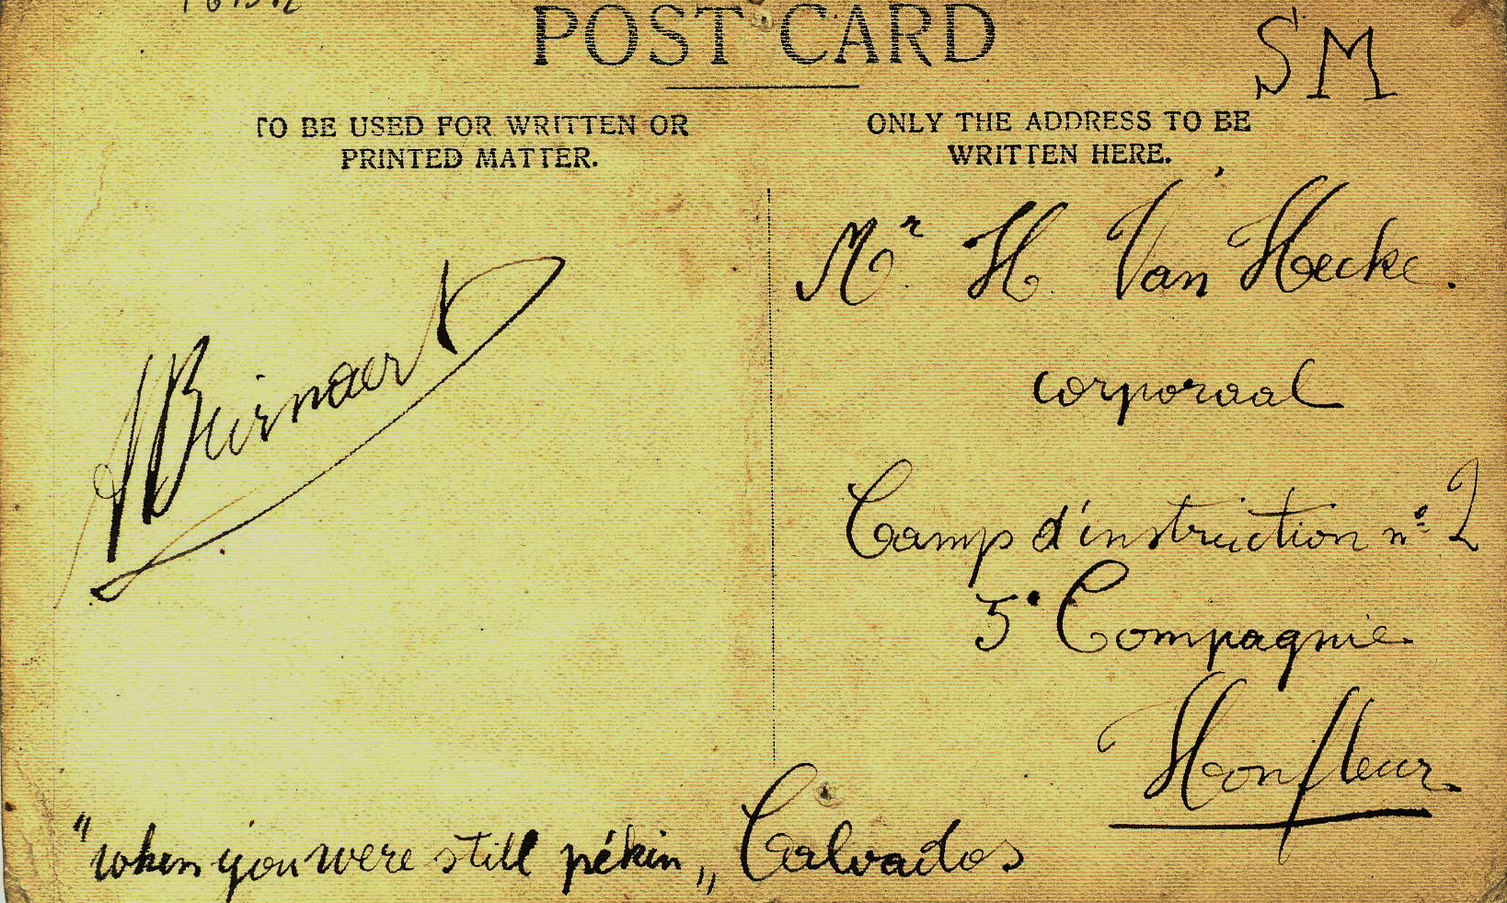 POST CARD
SM
TO BE USED FOR WRITTEN OR
PRINTED MATTER.
ONLY THE ADDRESS TO BE
WRITTEN HERE.
Mr. H. Van Hecke.
corporaal
Camp d'instruction n° 2
5e Compagnie.
Honfleur.
Calvados
"when you were still pékin„